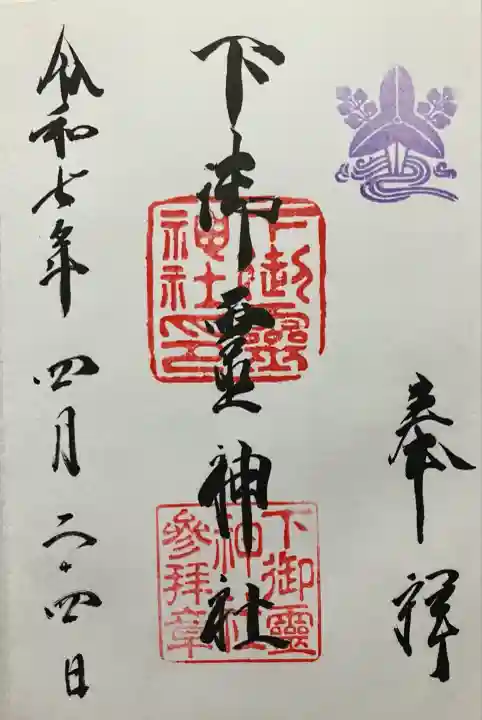 奉拝
下御靈神社
下御靈神社印
下御靈神社參拜章
令和七年四月二十四日